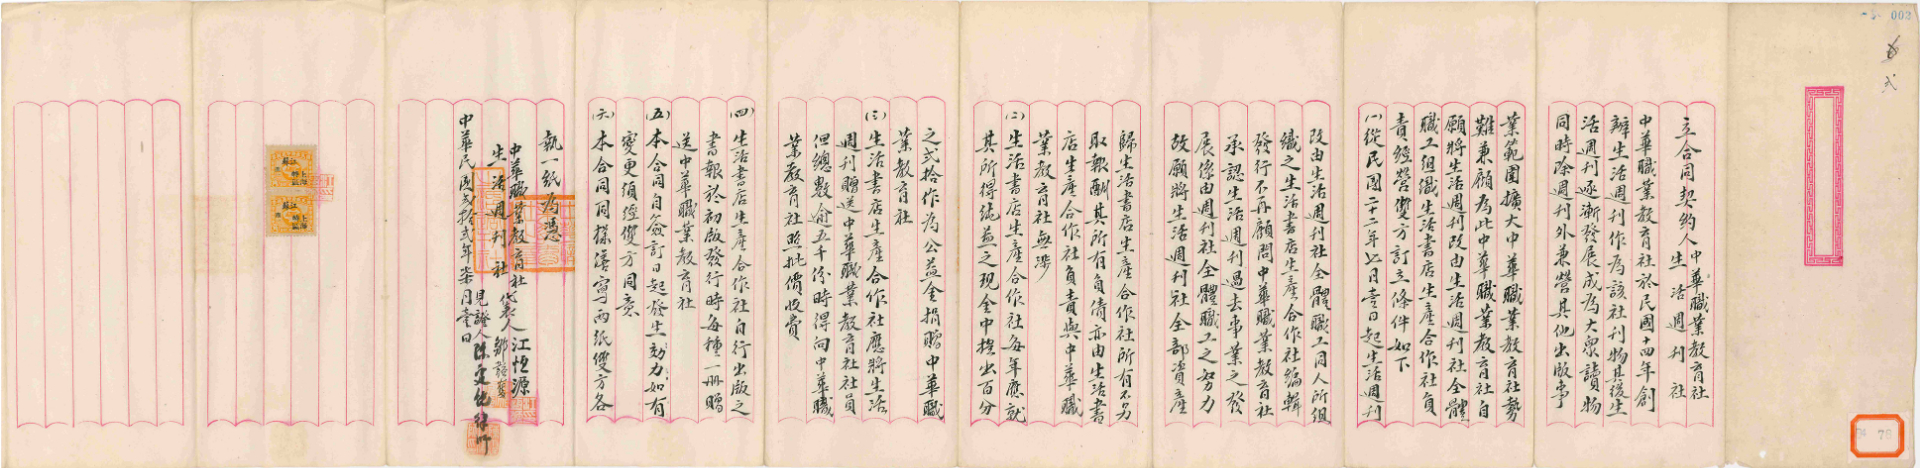 002
立合同契約人中華職業教育社
生活週刊社
中華職業教育社於民國十四年創
辦生活週刊作為該社刊物其後生
活週刊逐漸發展成為大眾讀物
同時除週刊外兼營其他出版事
業範圍擴大中華職業教育社勢
難兼顧為此中華職業教育社自
願將生活週刊改由生活週刊社全體
職工組織生活書店生產合作社負
責經營雙方訂立條件如下
(一)從民國二十二年七月壹日起生活週刊
改由生活週刊社全體職工同人所組
織之生活書店生產合作社編輯
發行不再顧問中華職業教育社
承認生活週刊過去事業之發
展係由週刊社全體職工之努力
故願將生活週刊社全部資產
歸生活書店生產合作社所有不另
取報酬其所有負債亦由生活書
店生產合作社負責與中華職
業教育社無涉
(二)生活書店生產合作社每年應就
其所得純益之現金中撥出百分
之弍拾作為公益金捐贈中華職
業教育社
(三)生活書店生產合作社應將生活
週刊贈送中華職業教育社社員
但總數逾五千份時得向中華職
業教育社照批價收費
(四)生活書店生產合作社自行出版之
書報於初版發行時每種一冊贈
送中華職業教育社
(五)本合同自簽訂日起發生効力如有
變更須經雙方同意
(六)本合同同樣繕寫兩紙雙方各
執一紙為憑
中華職業教育社代表人江恆源
生活週刊社 鄒韜奮
見證人
中華民國弍拾弍年柒月壹日
76